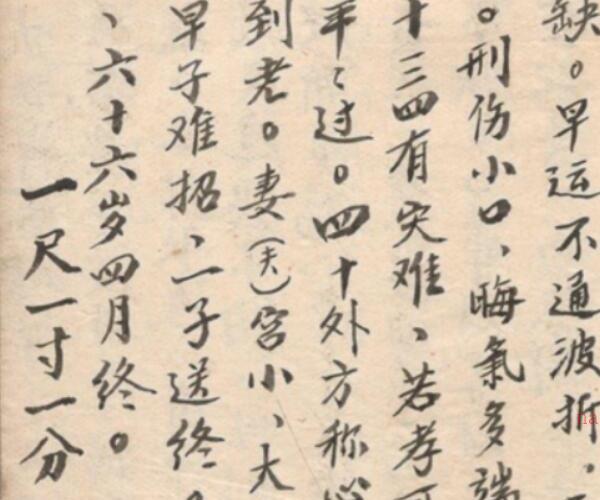 缺。早运不通波折，
。刑伤小口、晦气多端
十三四有灾难、若孝
平平过。四十外方称心
到老。妻（夫）宫小、大
早子难招、二子送终，
、六十六岁四月终。
一尺一寸一分